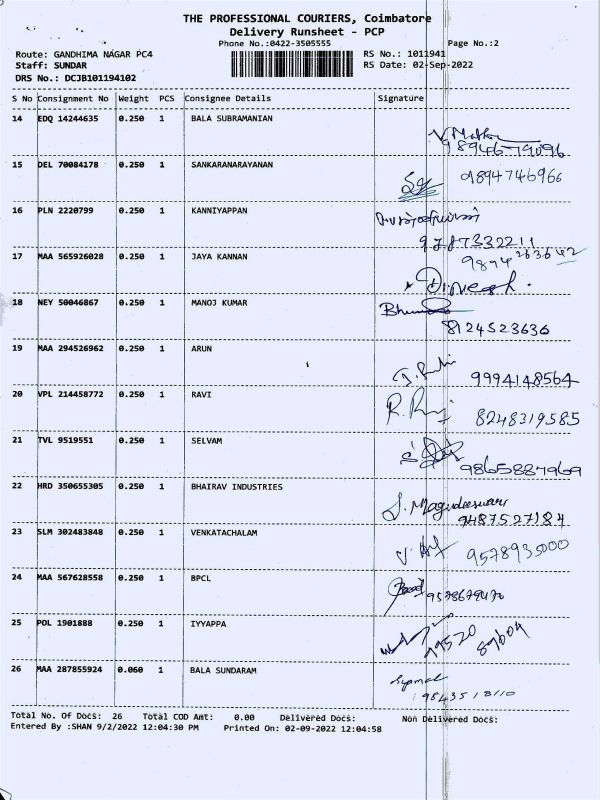 THE PROFESSIONAL COURIERS, Coimbatore
Delivery Runsheet - PCP
Phone No.:0422-3505555 Page No.:2
Route: GANDHIMA NAGAR PC4 RS No.: 1011941
Staff: SUNDAR RS Date: 02-Sep-2022
DRS No.: DCJB101194102
S No Consignment No Weight PCS Consignee Details Signature
14 EDQ 14244635 0.250 1 BALA SUBRAMANIAN
9894679096
15 DEL 70084178 0.250 1 SANKARANARAYANAN
9894746966
16 PLN 2220799 0.250 1 KANNIYAPPAN
9787332211
17 MAA 565926028 0.250 1 JAYA KANNAN
9894263642
Dinesh.
18 NEY 50046867 0.250 1 MANOJ KUMAR
8124523636
19 MAA 294526962 0.250 1 ARUN
9994148564
20 VPL 214458772 0.250 1 RAVI
R. 8248319585
21 TVL 9519551 0.250 1 SELVAM
9865887969
22 HRD 350655305 0.250 1 BHAIRAV INDUSTRIES
J. Magudeeswari
9487527184
23 SLM 302483848 0.250 1 VENKATACHALAM
9578935000
24 MAA 567628558 0.250 1 BPCL
9578679470
25 POL 1901888 0.250 1 IYYAPPA
79520 89604
26 MAA 287855924 0.060 1 BALA SUNDARAM
Total No. Of Docs: 26 Total COD Amt: 0.00 Delivered Docs: Non Delivered Docs:
Entered By :SHAN 9/2/2022 12:04:30 PM Printed On: 02-09-2022 12:04:58